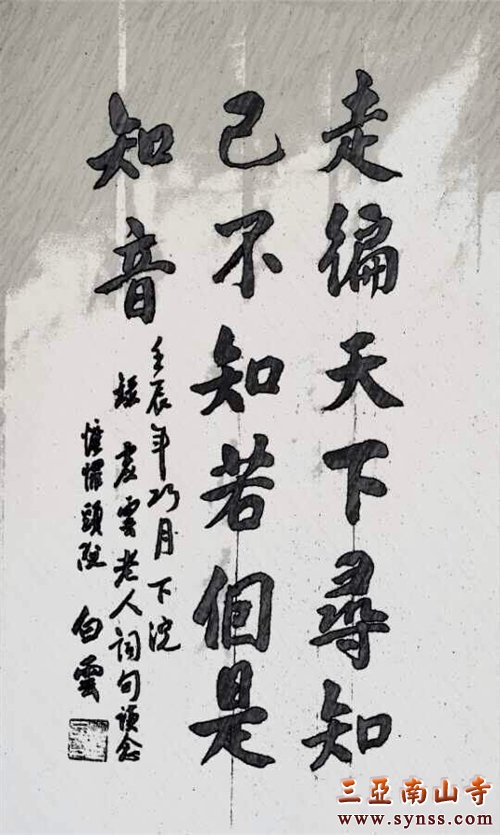 走徧天下尋知
己不知若個是
知音
壬辰年巧月下浣
虛雲老人詞句
頭陀 白雲
三亞南山寺
www.synss.com